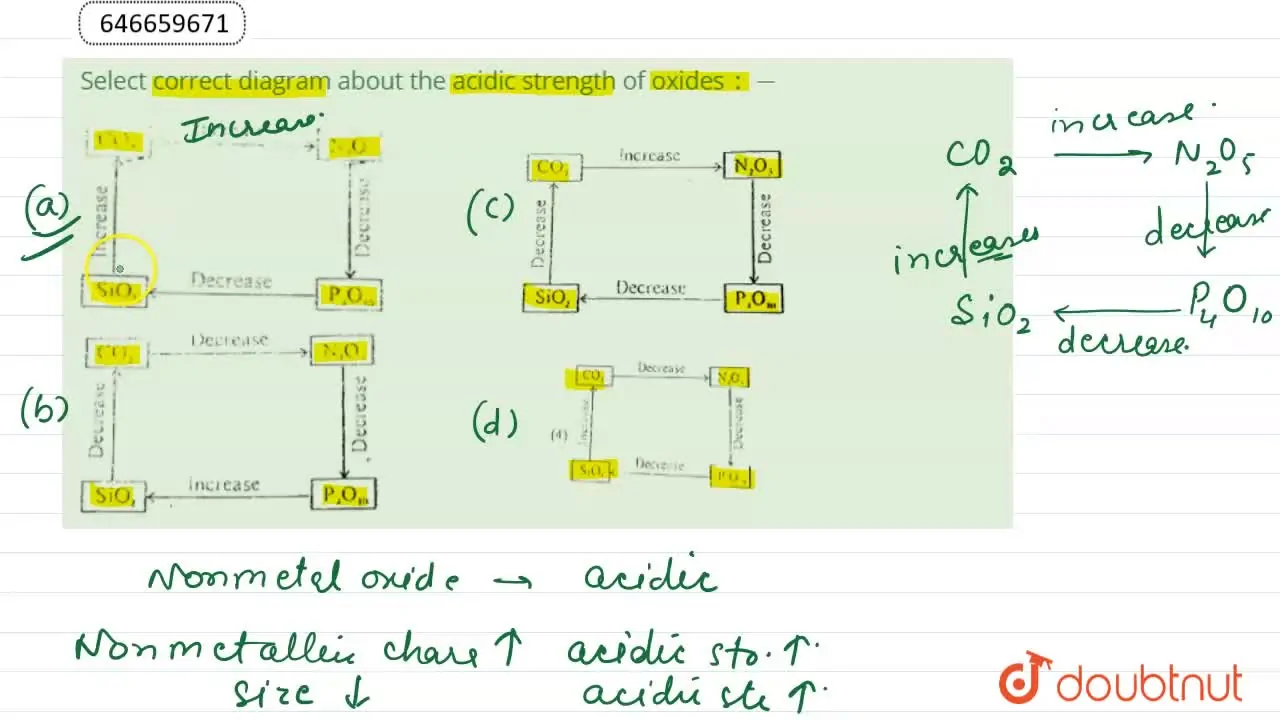 646659671
Select correct diagram about the acidic strength of oxides : —
(a)
Increase.
Increase
Decrease
Decrease
SiO₂
P₄O₁₀
(c)
CO₂
Increase
N₂O₅
Decrease
Decrease
SiO₂
Decrease
P₄O₁₀
(b)
CO₂
Decrease
Decrease
Decrease
SiO₂
Increase
P₄O₁₀
(d)
CO₂
Decrease
N₂O₅
(d)
Increase
Decrease
SiO₂
Decrease
increase.
CO₂ → N₂O₅
increases
decrease
SiO₂ ← P₄O₁₀
decrease.
Nonmetal oxide → acidic
Nonmetallic charc ↑ acidic str. ↑.
size ↓ acidic str ↑.
doubtnut